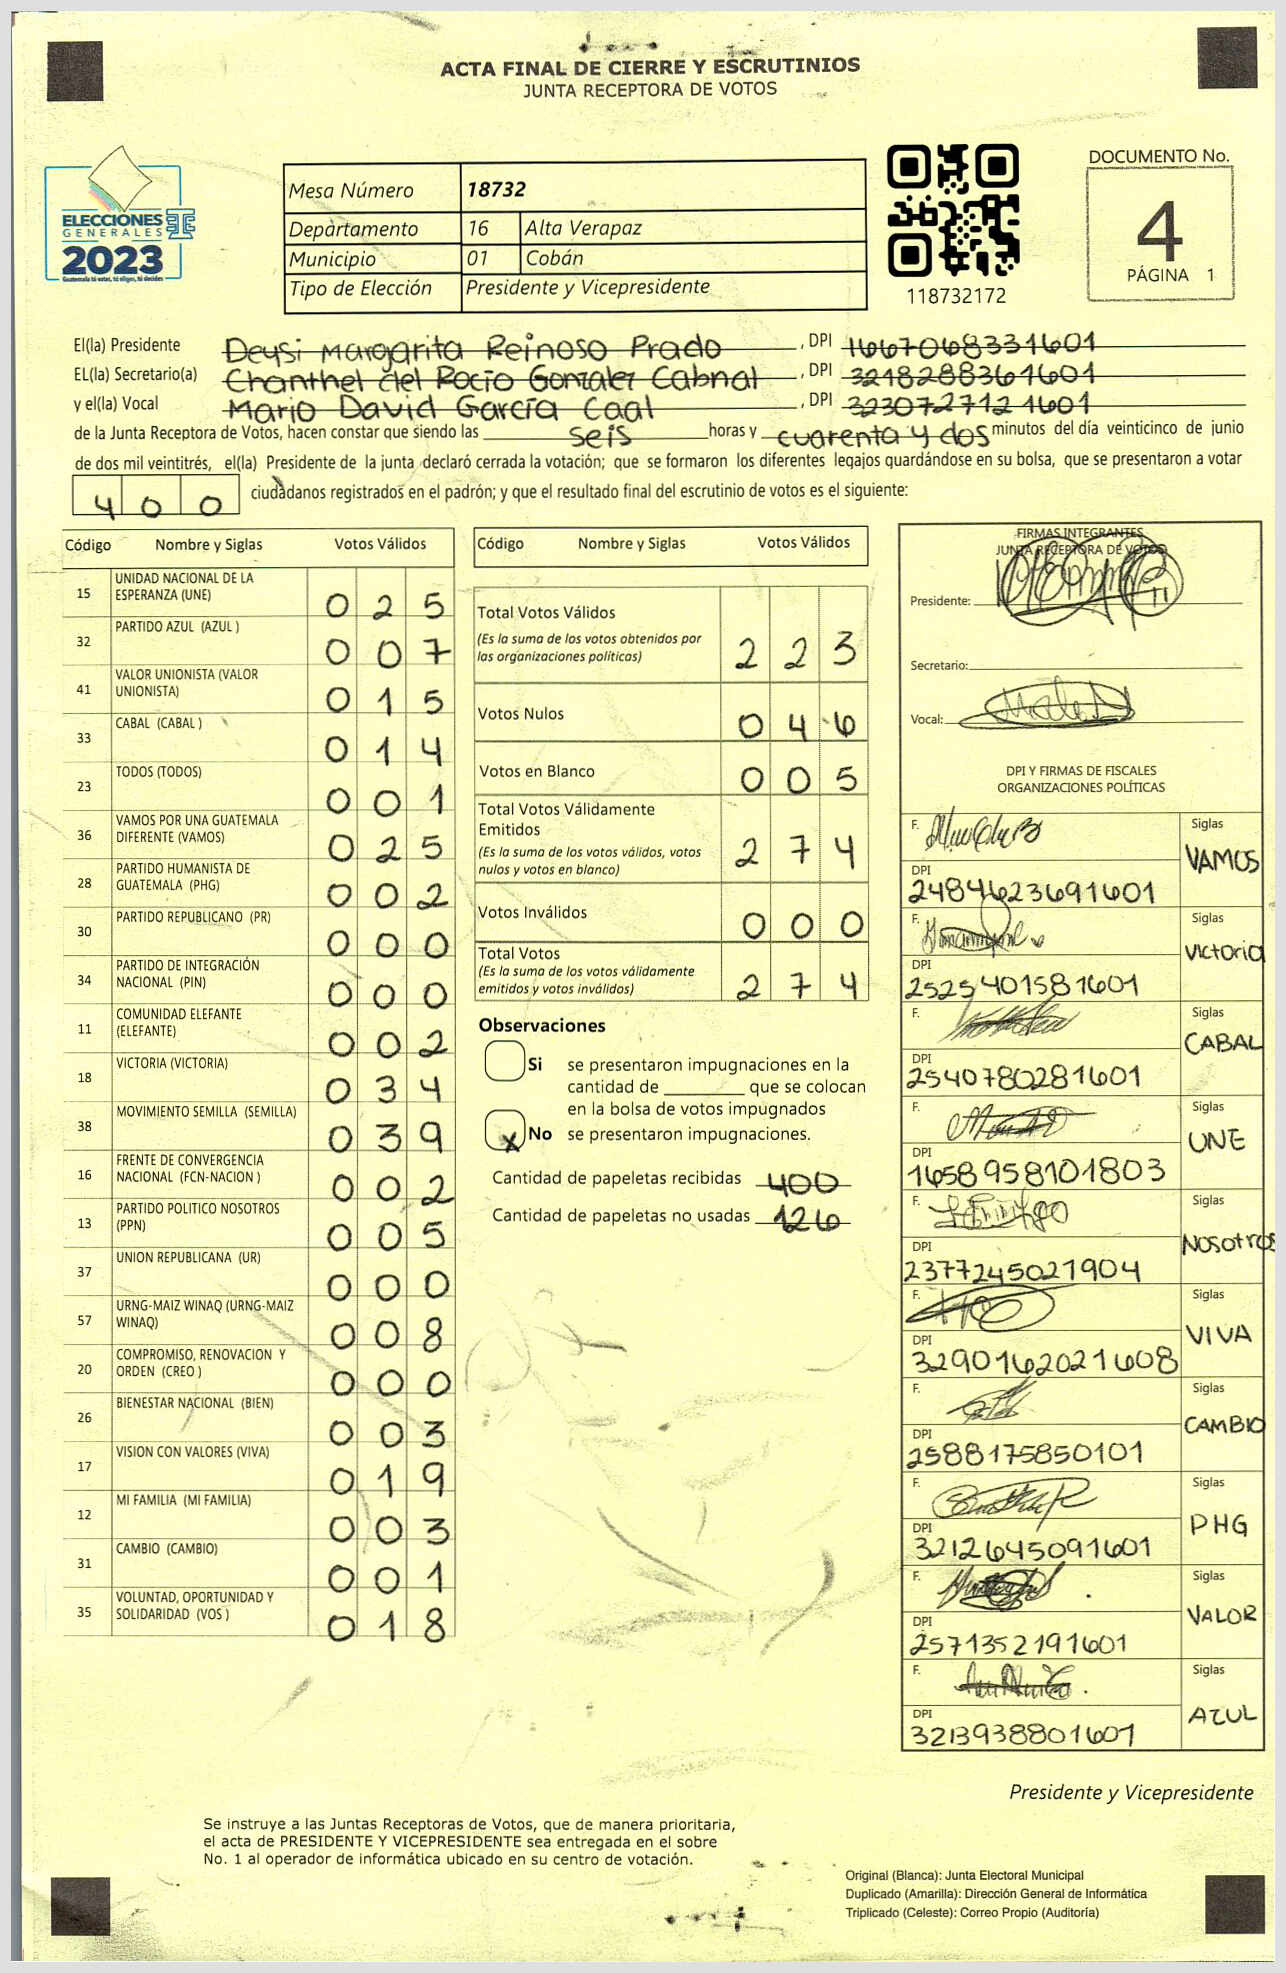 ACTA FINAL DE CIERRE Y ESCRUTINIOS
JUNTA RECEPTORA DE VOTOS
ELECCIONES
GENERALES
2023
Guatemala tú votas, tú eliges, tú decides
Mesa Número 18732
Departamento 16 Alta Verapaz
Municipio 01 Cobán
Tipo de Elección Presidente y Vicepresidente
118732172
DOCUMENTO No.
4
PÁGINA 1
El(la) Presidente Deysi Margarita Reinoso Prado, DPI 1667068331601
EL(la) Secretario(a) Chanthel del Rocío Gonzalez Cabnal, DPI 3218288361601
y el(la) Vocal Mario David García Caal, DPI 3230727121601
de la Junta Receptora de Votos, hacen constar que siendo las seis horas y cuarenta y dos minutos del día veinticinco de junio
de dos mil veintitrés, el(la) Presidente de la junta declaró cerrada la votación; que se formaron los diferentes legajos guardándose en su bolsa, que se presentaron a votar
400 ciudadanos registrados en el padrón; y que el resultado final del escrutinio de votos es el siguiente:
Código Nombre y Siglas Votos Válidos
15 UNIDAD NACIONAL DE LA ESPERANZA (UNE) 025
32 PARTIDO AZUL (AZUL ) 007
41 VALOR UNIONISTA (VALOR UNIONISTA) 015
33 CABAL (CABAL ) 014
23 TODOS (TODOS) 001
36 VAMOS POR UNA GUATEMALA DIFERENTE (VAMOS) 025
28 PARTIDO HUMANISTA DE GUATEMALA (PHG) 002
30 PARTIDO REPUBLICANO (PR) 000
34 PARTIDO DE INTEGRACIÓN NACIONAL (PIN) 000
11 COMUNIDAD ELEFANTE (ELEFANTE) 002
18 VICTORIA (VICTORIA) 034
38 MOVIMIENTO SEMILLA (SEMILLA) 039
16 FRENTE DE CONVERGENCIA NACIONAL (FCN-NACION ) 002
13 PARTIDO POLITICO NOSOTROS (PPN) 005
37 UNION REPUBLICANA (UR) 000
57 URNG-MAIZ WINAQ (URNG-MAIZ WINAQ) 008
20 COMPROMISO, RENOVACION Y ORDEN (CREO ) 000
26 BIENESTAR NACIONAL (BIEN) 003
17 VISION CON VALORES (VIVA) 019
12 MI FAMILIA (MI FAMILIA) 003
31 CAMBIO (CAMBIO) 001
35 VOLUNTAD, OPORTUNIDAD Y SOLIDARIDAD (VOS ) 018
Código Nombre y Siglas Votos Válidos
Total Votos Válidos 223
(Es la suma de los votos obtenidos por
las organizaciones politicas)
Votos Nulos 046
Votos en Blanco 005
Total Votos Válidamente
Emitidos 274
(Es la suma de los votos válidos, votos
nulos y votos en blanco)
Votos Inválidos 000
Total Votos 274
(Es la suma de los votos válidamente
emitidos y votos inválidos)
Observaciones
Si se presentaron impugnaciones en la
cantidad de ________ que se colocan
en la bolsa de votos impugnados
X No se presentaron impugnaciones.
Cantidad de papeletas recibidas 400
Cantidad de papeletas no usadas 126
FIRMAS INTEGRANTES
JUNTA RECEPTORA DE VOTOS
Presidente:
Secretario:
Vocal:
DPI Y FIRMAS DE FISCALES
ORGANIZACIONES POLÍTICAS
F. Siglas VAMOS
DPI 2484623691601
F. Siglas Victoria
DPI 2525401581601
F. Siglas CABAL
DPI 2540780281601
F. Siglas UNE
DPI 1658958101803
F. Siglas Nosotros
DPI 2377245021904
F. Siglas VIVA
DPI 3290162021608
F. Siglas CAMBIO
DPI 2588175850101
F. Siglas PHG
DPI 3212645091601
F. Siglas VALOR
DPI 2571352191601
F. Siglas AZUL
DPI 3213938801601
Presidente y Vicepresidente
Se instruye a las Juntas Receptoras de Votos, que de manera prioritaria,
el acta de PRESIDENTE Y VICEPRESIDENTE sea entregada en el sobre
No. 1 al operador de informática ubicado en su centro de votación.
Original (Blanca): Junta Electoral Municipal
Duplicado (Amarilla): Dirección General de Informática
Triplicado (Celeste): Correo Propio (Auditoría)